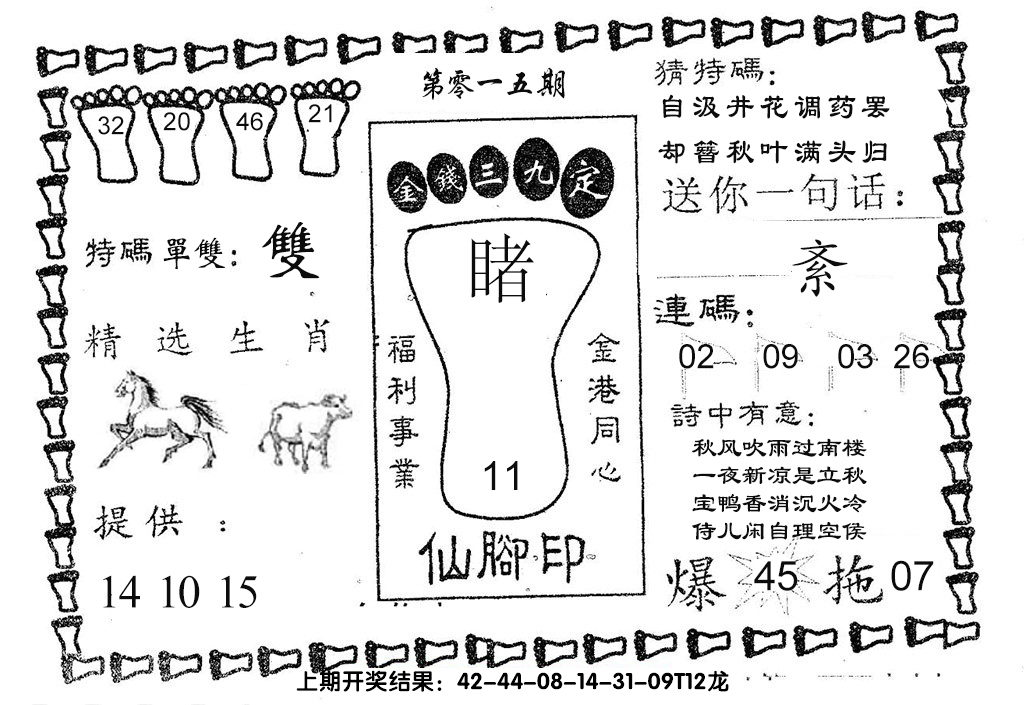 第零一五期
32 20 46 21
特碼單雙：雙
精选生肖
提供：
14 10 15
金錢三九定
睹
福利事業
金港同心
11
仙腳印
猜特碼：
自汲井花调药罢
却簪秋叶满头归
送你一句话：
紊
連碼：
02 09 03 26
詩中有意：
秋风吹雨过南楼
一夜新凉是立秋
宝鸭香消沉火冷
侍儿闲自理空侯
爆 45 拖 07
上期开奖结果：42-44-08-14-31-09T12龙